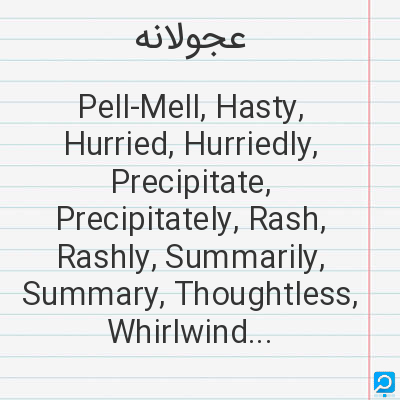 عجولانه
Pell-Mell, Hasty,
Hurried, Hurriedly,
Precipitate,
Precipitately, Rash,
Rashly, Summarily,
Summary, Thoughtless,
Whirlwind...